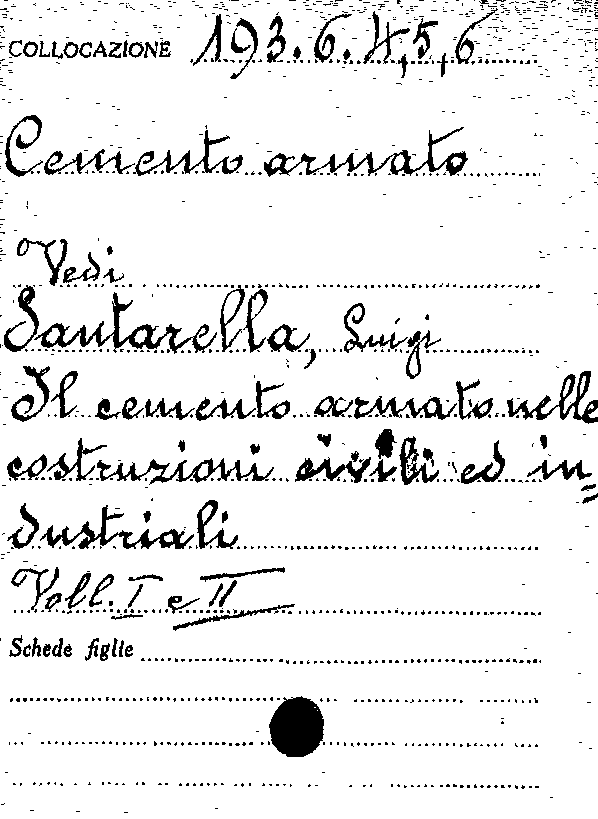 COLLOCAZIONE 193.6.4,5,6
Cemento armato
Vedi
Santarella, Luigi
Il cemento armato nelle
costruzioni civili ed in=
dustriali
Voll. I e II
Schede figlie